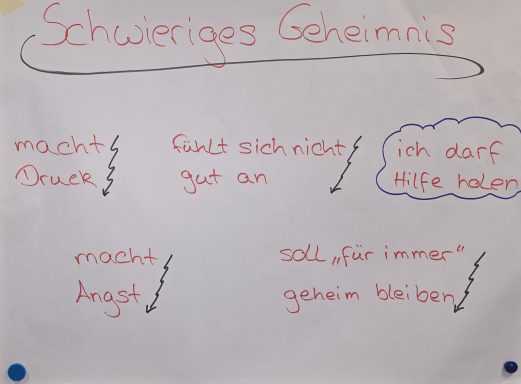 Schwieriges Geheimnis
macht
Druck
fühlt sich nicht
gut an
ich darf
Hilfe holen
macht
Angst
soll „für immer“
geheim bleiben